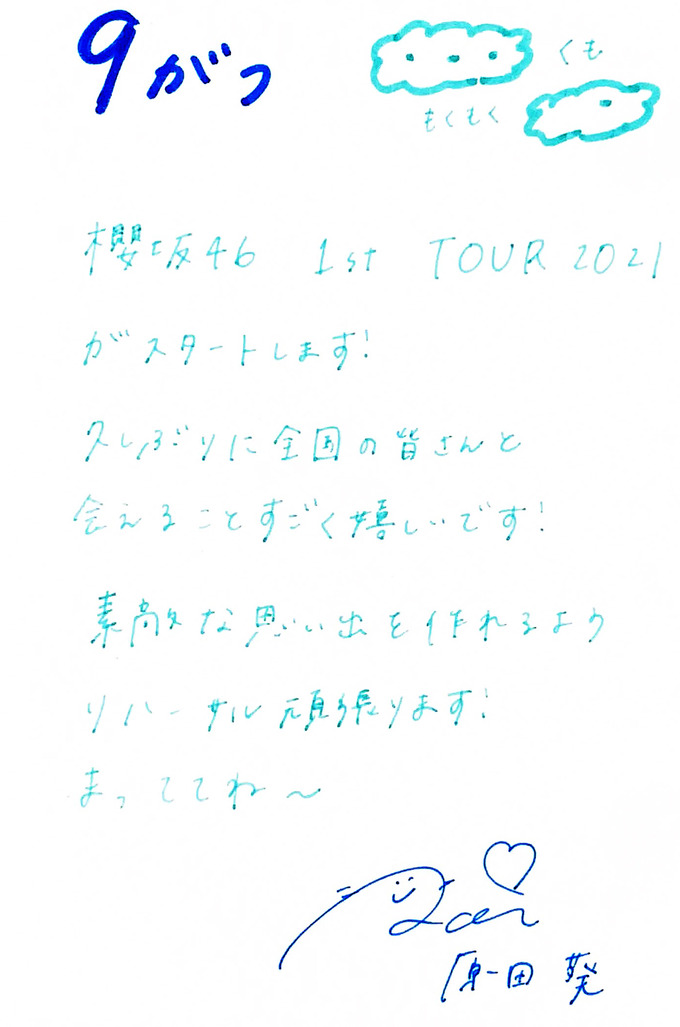 9がつ
くも
もくもく
櫻坂46 1st TOUR 2021
がスタートします!
久しぶりに全国の皆さんと
会えることすごく嬉しいです!
素敵な思い出を作れるよう
リハーサル頑張ります!
まっててね〜
原田 葵